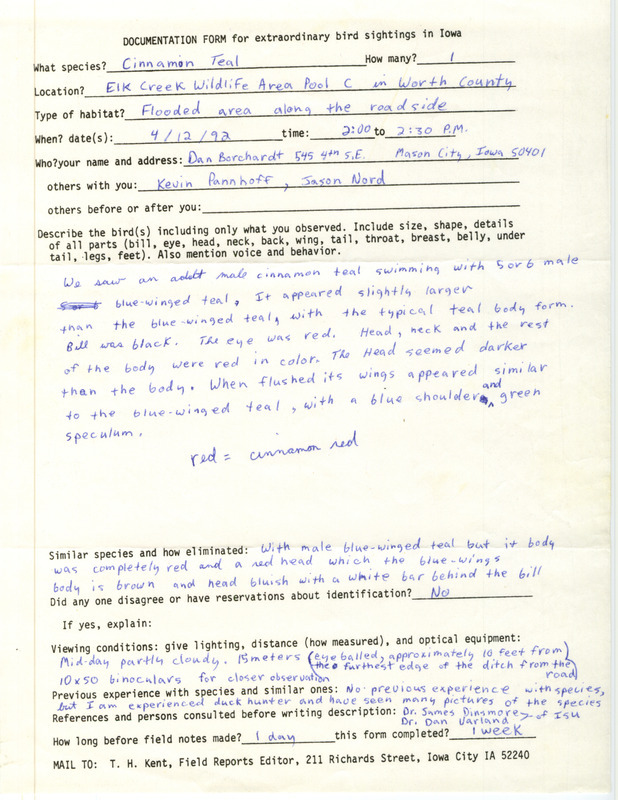 DOCUMENTATION FORM for extraordinary bird sightings in Iowa
What species? Cinnamon Teal How many? 1
Location? Elk Creek Wildlife Area Pool C in Worth County
Type of habitat? Flooded area along the roadside
When? date(s): 4/12/92 time: 2:00 to 2:30 P.M.
Who?your name and address: Dan Borchardt 545 4th S.E. Mason City, Iowa 50401
others with you: Kevin Pannhoff, Jason Nord
others before or after you:
Describe the bird(s) including only what you observed. Include size, shape, details
of all parts (bill, eye, head, neck, back, wing, tail, throat, breast, belly, under
tail, legs, feet). Also mention voice and behavior.
We saw an adult male cinnamon teal swimming with 5 or 6 male
5 or 6 blue-winged teal. It appeared slightly larger
than the blue-winged teal, with the typical teal body form.
Bill was black. The eye was red. Head, neck and the rest
of the body were red in color. The Head seemed darker
than the body. When flushed its wings appeared similar
to the blue-winged teal, with a blue shoulder and green
speculum.
red = cinnamon red
Similar species and how eliminated: With male blue-winged teal but it body
was completely red and a red head which the blue-wings
body is brown and head bluish with a white bar behind the bill
Did any one disagree or have reservations about identification? No
If yes, explain:
Viewing conditions: give lighting, distance (how measured), and optical equipment:
Mid-day partly cloudy. 15 meters (eye balled, approximately 10 feet from
the furthest edge of the ditch from the road)
10x50 binoculars for closer observation
Previous experience with species and similar ones: No previous experience with species,
but I am experienced duck hunter and have seen many pictures of the species
References and persons consulted before writing description: Dr. James Dinsmore
Dr. Dan Varland > of ISU
How long before field notes made? 1 day this form completed? 1 week
MAIL TO: T. H. Kent, Field Reports Editor, 211 Richards Street, Iowa City IA 52240